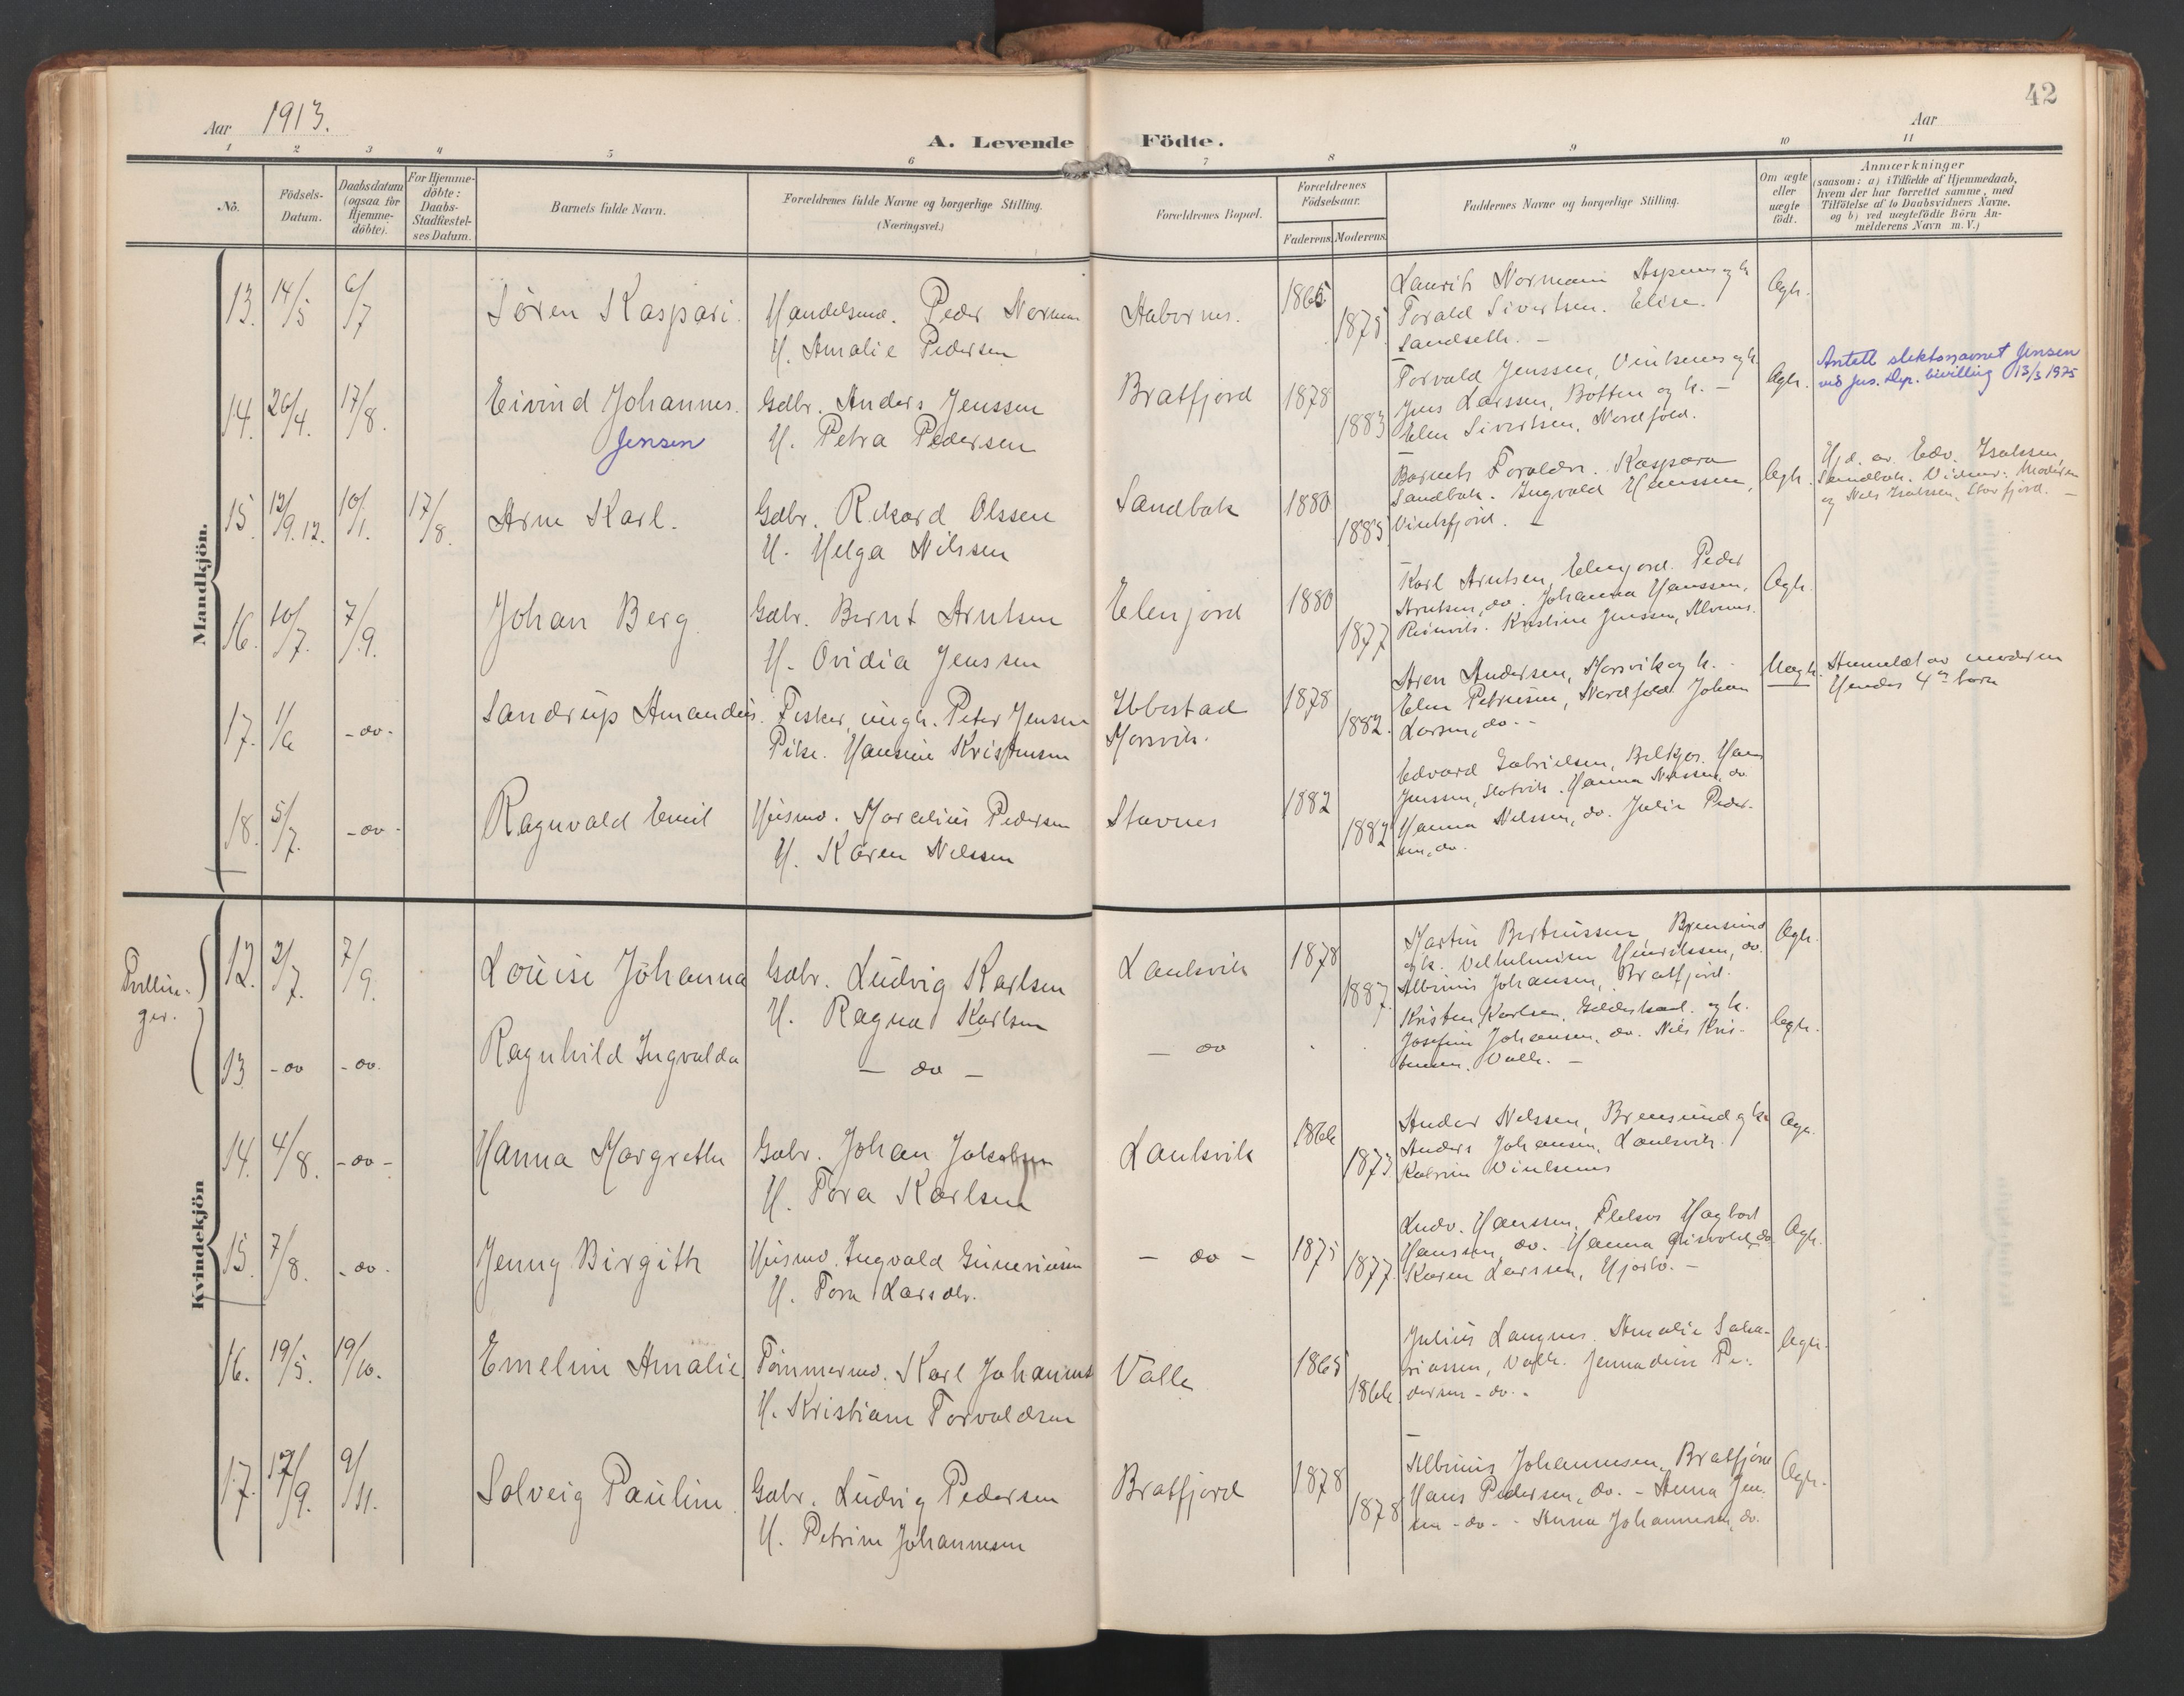 42
Aar 1913.
Aar
A. Levende Födte.
1 2 3 4 5 6 7 8 9 10 11
No.
Födsels-
Datum.
Daabsdatum
(ogsaa for
Hjemme-
döbte).
For Hjemme-
döbte:
Daabs-
Stadfæstel-
ses Datum.
Barnets fulde Navn.
Forældrenes fulde Navne og borgerlige Stilling.
(Næringsvei.)
Forældrenes Bopæl.
Forældrenes
Födselsaar.
Faderens. Moderens.
Faddernes Navne og borgerlige Stilling.
Om ægte
eller
uægte
födt.
Anmærkninger
(saasom: a) i Tilfælde af Hjemmedaab,
hvem der har forrettet samme, med
Tilföielse af to Daabsvidners Navne,
og b) ved uægtefödte Börn An-
melderens Navn m. V.)
Mandkjön.
13. 14/5 6/7 Søren Kaspari.
Handelsmd. Peder Norman
H. Amalie Pedersen
1865
1875
Laurits Normann
Torald Sivertsen. Elise
Sandseth. -
Ægte.
14. 26/4. 17/8. Eivind Johannes.
Jensen
Gdbr. Anders Jenssen
H. Petra Pedersen
Bratfjord
1878
1883
Torvald Jenssen, Vinkenes og h.
Jens Larssen, Botten og h. -
Elen Sivertsen, Nordfold.
Ægte.
Antatt slektsnavnet Jensen
ved Jus. Dep. bevilling 13/3 1975
15. 12/9.12. 10/1. 17/8. Arne Karl.
Gdbr. Rikard Olssen
H. Helga Nilssen
Sandbak
1880
1885
Barnets Foraldre. Kaspara
Sandbak. Ingvald Hanssen,
Vinkfjord. -
Ægte.
Hjd. av Edv. Isaksen,
Sandbak. Vidner: Moderen
og Nils Isaksen,
16. 10/7. 7/9. Johan Berg
Gdbr. Bernt Arntsen
H. Ovidia Jenssen
Elenjord
1880
1877
Karl Arntsen, Elenjord. Peder
Arntsen, do. Johanna Hanssen,
Kristine Jenssen,
Ægte.
17. 1/6 -do- Sandrup Amandus.
Fisker, ungk. Peter Jensen
Pike. Hansine Kristensen
Ibbestad
Morsvik.
1878
1882.
Aren Andersen, Morsvik og h. -
Elen Petersen, Nordfold. Johan
Larsen, do. -
Uægte.
Anmeldt av moderen
Hendes 4de barn
18. 5/7. -do- Ragnvald Emil
Husmd. Marcelius Pedersen
H. Karen Nilssen
Stavnes
1882
1882
Edvard Gabrielsen, Hans
Jenssen, Slotvik. Hanna Nilssen, do.
Hanna Nilssen, do. Julie Peder-
sen, do.
Kvindekjön
Tvillin-
ger.
12. 2/7. 7/9. Louise Johanna
Gdbr. Ludvig Karlsen
H. Ragna Karlsen
Laukvik
1878
1887.
Martin Bertiussen, Brensund
og h. Vilhelmine Henrikssen, do.
Albinus Johansen, Bratfjord.
Ægte.
13 -do -do. Ragnhild Ingvalda
- do -
- do
Kristen Karlsen, Gildeskaal og h.
Josefine Johansen, do. Nils Kris-
tensen, Valle. -
Ægte.
14. 4/8. -do- Hanna Margrethe
Gdbr. Johan Jakobsen
H. Tora Karlsen
Laukvik
1866
1873.
Ander Nilssen, Brensund og h.
Anders Johansen, Laukvik.
Katrine Vinkenes
Ægte.
15. 7/8. -do- Jenny Birgith
Husmd. Ingvald Guneriusen
H. Tora Larsdtr.
- do -
1875
1877.
Ludv. Hanssen, Hagbart
Hanssen, do. Hanna
Karen Larssen,
Ægte.
16. 19/5. 19/10. Emeline Amalie
Tömmermd. Karl Johannes
H. Kristiane Torvaldsen
Valle
1865
1866.
Julius Langnes. Amalie Saka-
riassen, Valle. Jennadine Pe-
dersen - do. -
Ægte.
17. 17/9. 9/11. Solveig Pauline
Gdbr. Ludvig Pedersen
H. Petrine Johannesen
Bratfjord
1878
1878
Albinus Johannesen, Bratfjord
Hans Pedersen, do. - Anna Jen-
sen - do. - Anna Johannesen, do.
Ægte.